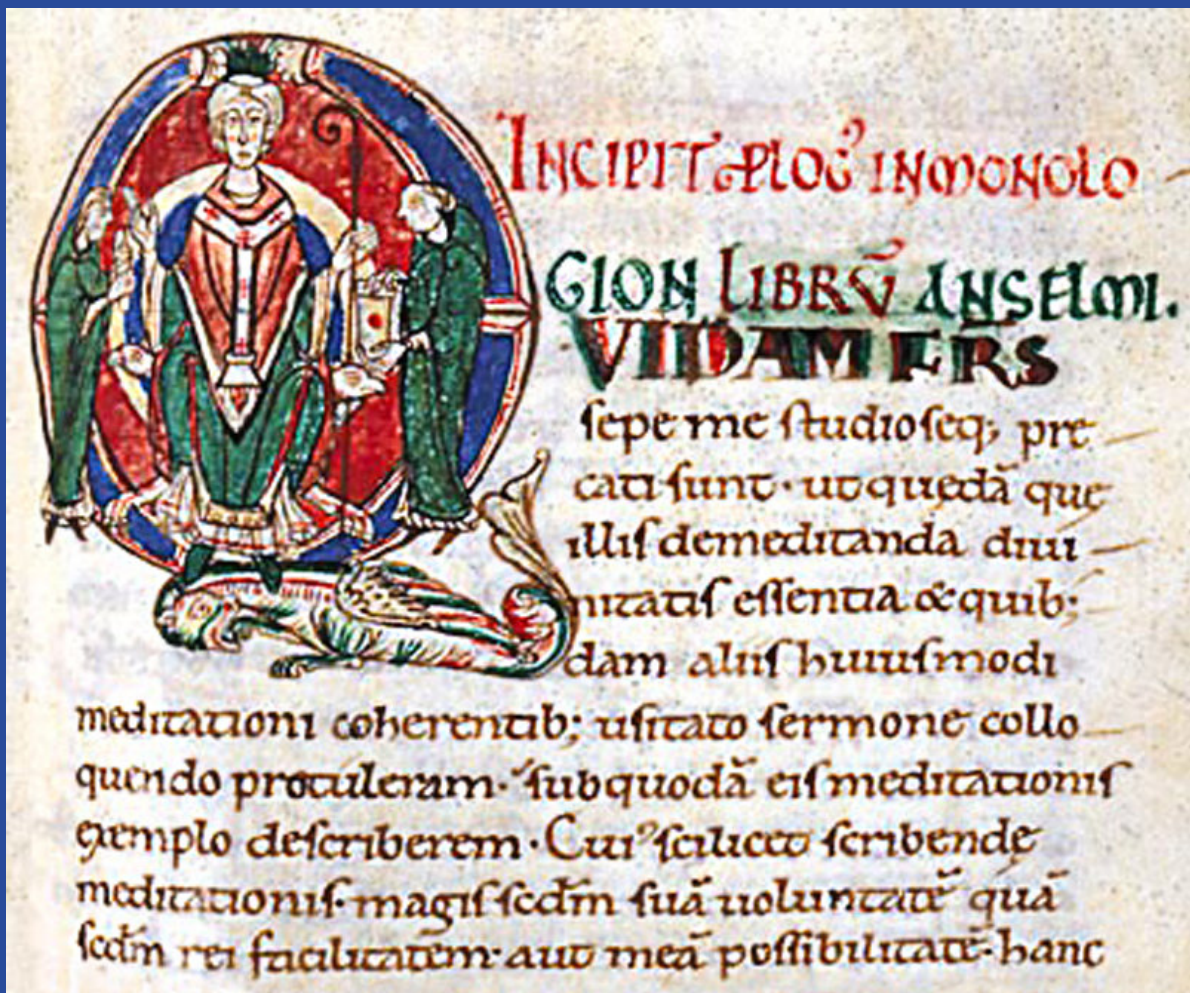 INCIPIT PLOG' IN MONOLO
GION LIBRŪ ANSELMI.
QUIDAM FR̄S
sepe me studioseq; pre
cati sunt · ut quędā quę
illis de meditanda diui
nitatis essentia & quib;
dam aliis huiusmodi
meditationi coherentib; usitato sermone collo
quendo protuleram · sub quodā eis meditationis
exemplo describerem · Cui' scilicet scribendę
meditationis · magis scd̄m suā uoluntatē quā
scd̄m rei facilitatem · aut meā possibilitatē · hanc